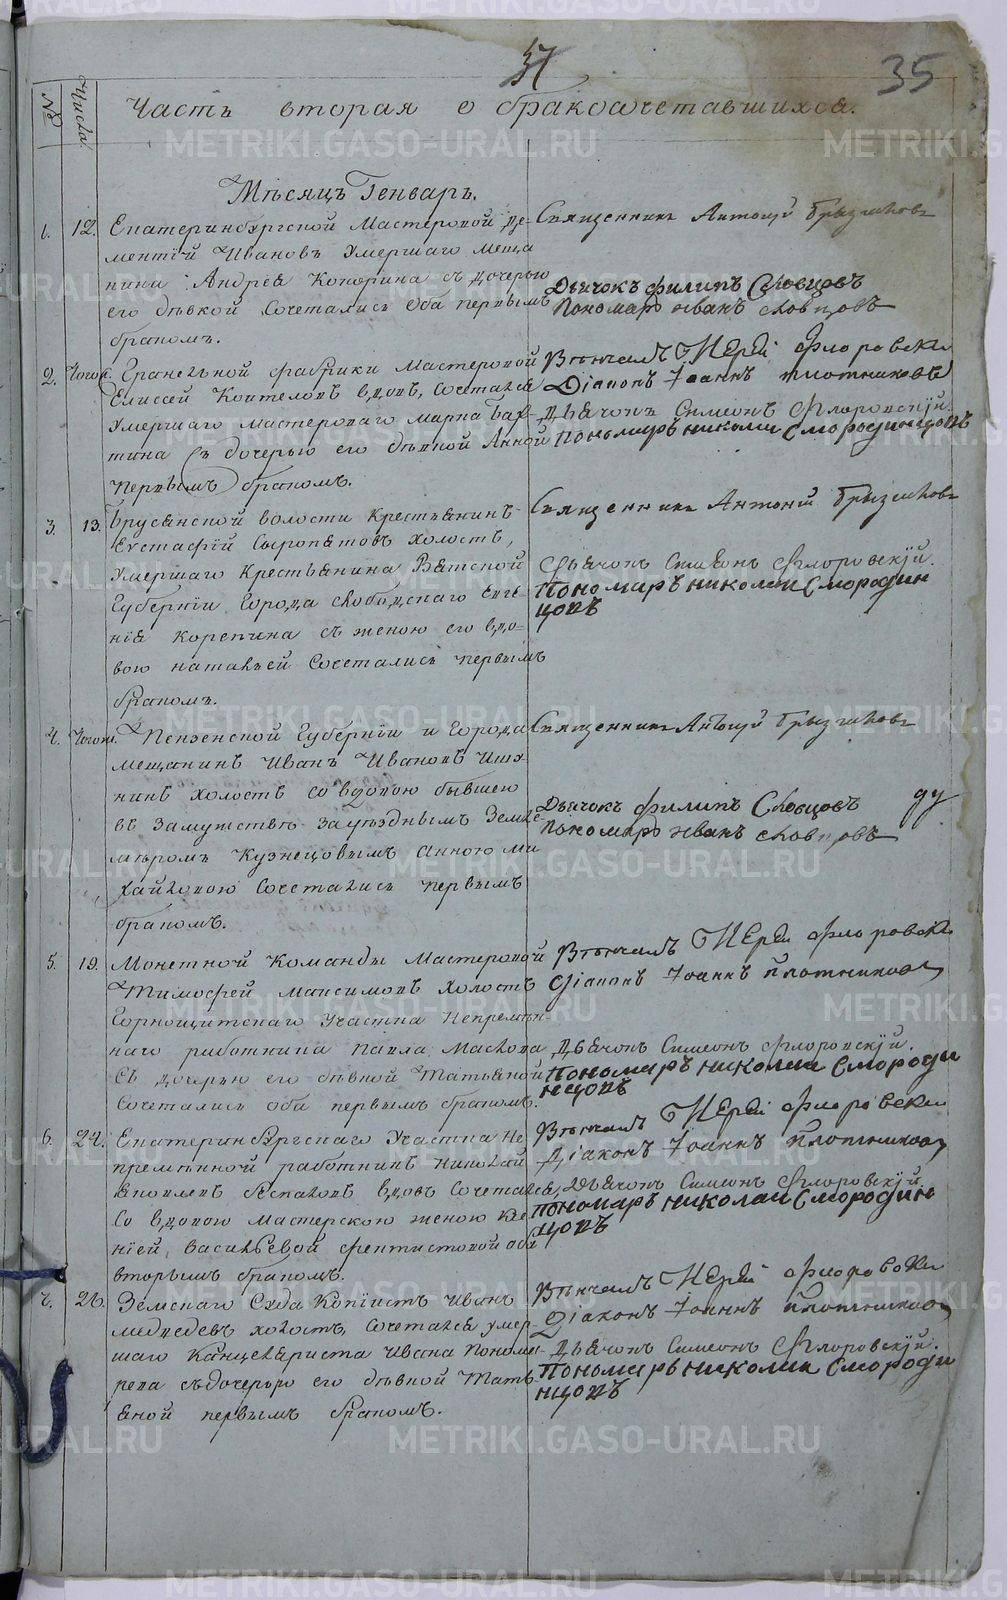 37
35
№
Числа.
Часть вторая о бракосочетавшихся.
Мѣсяцъ Генварь.
1. 12. Екатеринбургской Мастеровой Де-
ментій Ивановъ Умершаго Меща
нина Андрея Копорина съ дочерью
его дѣвкой Сочетались Оба первымъ
бракомъ.
Священникъ Антоній Брызгаловъ
Дьячокъ Филипъ Словцовъ
Пономарь Иванъ Словцовъ
2. Тогож. Гранильной фабрики Мастеровой
Елисей Коптеловъ вдовъ, Сочетался
Умершаго мастероваго Марка
тина Съ дочерью его дѣвкой Анной
первымъ бракомъ.
Вѣнчалъ Іерей Флоровски
Діаконъ Іоаннъ Плотниковъ
Дьячокъ Симеонъ Флоровскій.
Пономарь Николаи Смородинцовъ
3. 13. Брусянской волости Крестьянинъ
Евстафій Сыропятовъ холостъ,
Умершаго Крестьянина Вятской
Губерніи Города Слободскаго Евге-
нія Корепина съ женою его вдо-
вою Натальей Сочетались первымъ
бракомъ.
Священникъ Антоній Брызгаловъ
Дьячокъ Симеонъ Флоровскій.
Пономарь Николаи Смородин
цовъ
4. Тогож. Пензенской Губерніи и Города
мещанинъ Иванъ Ивановъ
нинъ холостъ со вдовою бывшею
въ Замужствѣ За уѣзднымъ Земле-
мѣромъ Кузнецовымъ Анною Ми
хайловою Сочетались первымъ
бракомъ.
Священникъ Антоній Брызгаловъ
Дьячокъ Филипъ Словцовъ
Пономарь Иванъ Словцовъ
5. 19. Монетной Команды Мастеровой
Тимофей Максимовъ Холостъ
Горнощитскаго Участка Непремѣн
наго работника Павла Маслова
Съ дочерью его дѣвкой Татьяной
Сочетались оба первымъ бракомъ.
Вѣнчалъ Іерей Флоровски
Діаконъ Іоаннъ Плотниковъ
Дьячокъ Симеонъ Флоровскій.
Пономарь Николаи Смороди
нцовъ
6. 24. Екатеринбургскаго Участка Не
премѣнной работникъ Николай
Яковлевъ вдовъ Сочетался,
Со вдовою Мастерскою женою
ніей Васильевой Феоктистовой оба
вторымъ бракомъ.
Вѣнчалъ Іерей Флоровски
Діаконъ Іоаннъ Плотниковъ
Дьячокъ Симеонъ Флоровскій.
Пономарь Николаи Смородин
цовъ
7. 26. Земскаго Суда Копіистъ Иванъ
Медведевъ холостъ, Сочетался умер-
шаго Канцеляриста Ивана Понома
рева съ дочерью его дѣвкой Тать
яной первымъ бракомъ.
Вѣнчалъ Іерей Флоровски
Діаконъ Іоаннъ Плотниковъ
Дьячокъ Симеонъ Флоровскій.
Пономарь Николаи Смороди
нцовъ
METRIKI.GASO-URAL.RU